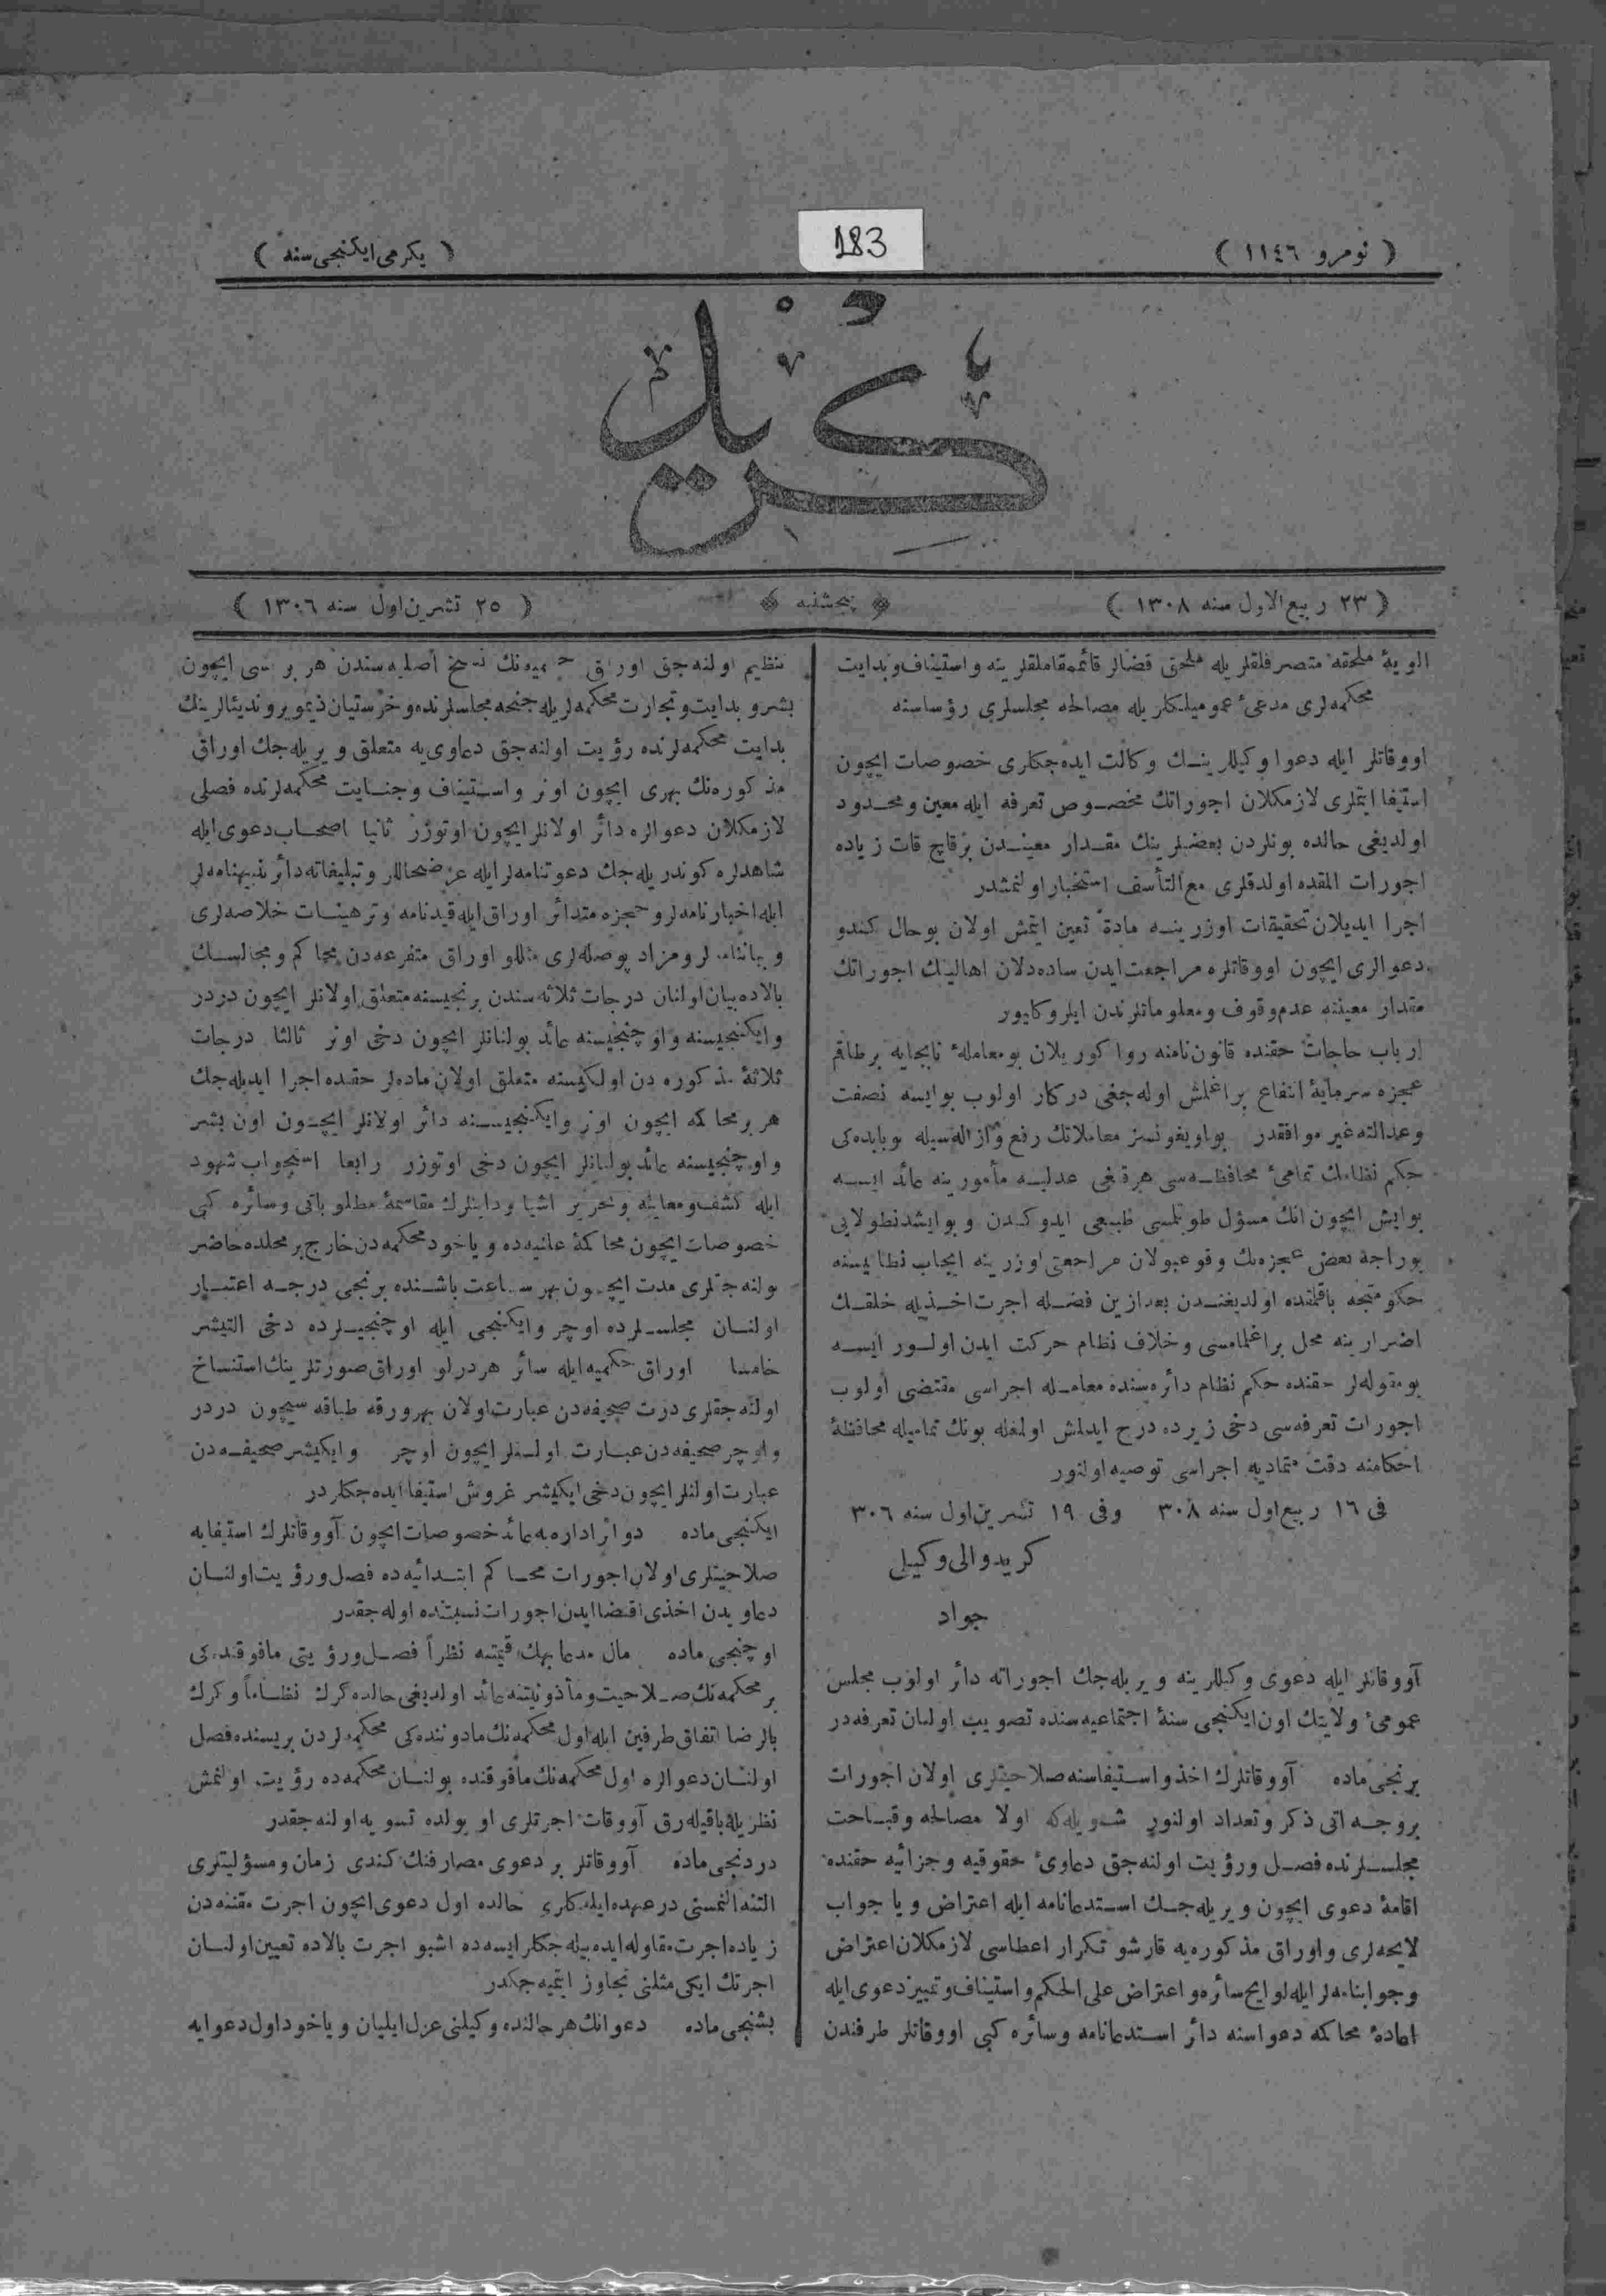 ( نومرو ١١٤٦ )
183
( يكرمی ايكنجی سنه )
كريد
( ٢٣ ربيع الاول سنه ١٣٠٨ )
پنجشنبه
( ٢٥ تشرين اول سنه ١٣٠٦ )
الويۀ ملحقه متصرفلقلريله ملحق قضالر قائممقاملقلرينه و استيناف و بدايت
محكمه‌لری مدعیٔ عموميلكلريله مصالحه مجلسلری رؤساسنه
اووقاتلر ايله دعوا وكيللرينك وكالت ايده‌جكلری خصوصات ايچون
استيفا ايتملری لازمكلان اجوراتك مخصوص تعرفه ايله معين و محدود
اولديغی حالده بونلردن بعضيلرينك مقدار معيندن برقاچ قات زياده
اجورات المقده اولدقلری مع التأسف استخبار اولنمشدر
اجرا ايديلان تحقيقات اوزرينه مادةً تعين ايتمش اولان بوحال كندو
دعوالری ايچون اووقاتلره مراجعت ايدن ساده‌دلان اهالينك اجوراتك
مقدار معيننه عدم وقوف و معلوماتلرندن ايلروكليور
ارباب حاجات حقنده قانون نامنه روا كوريلان بومعاملهٔ نابجايه برطاقم
عجزه سرمايۀ انتفاع براغلمش اوله‌جغی دركار اولوب بوايسه نصفت
وعدالته غير موافقدر بواويغونسز معاملاتك رفع و ازاله‌سيله بوبابده‌كی
حكم نظامك تمامیٔ محافظه‌سی هرقنغی عدليه مأمورينه عائد ايسه
بوايش ايچون انك مسؤل طوتلمسی طبيعی ايدوكندن و بوايشدنطولايی
بوراجه بعض عجزه‌نك وقوعبولان مراجعتی اوزرينه ايجاب نظاميسنه
حكومتجه باقلمقده اولديغندن بعدازين فضله اجرت اخذيله خلقك
اضرارينه محل براغلمامسی و خلاف نظام حركت ايدن اولور ايسه
بومقوله‌لر حقنده حكم نظام دائره‌سنده معامله اجراسی مقتضی اولوب
اجورات تعرفه‌سی دخی زيرده درج ايدلمش اولمغله بونك تماميله محافظۀ
احكامنه دقت متماديه اجراسی توصيه اولنور
فی ١٦ ربيع اول سنه ٣٠٨ وفی ١٩ تشرين اول سنه ٣٠٦
كريد والی وكيلی
جواد
آووقاتلر ايله دعوی وكيللرينه ويريله‌جك اجوراته دائر اولوب مجلس
عمومیٔ ولايتك اون ايكنجی سنۀ اجتماعيه‌سنده تصويب اولنان تعرفه‌در
برنجی ماده آووقاتلرك اخذ و استيفاسنه صلاحيتلری اولان اجورات
بروجه اتی ذكر و تعداد اولنور شويله‌كه اولا مصالحه و قباحت
مجلسلرنده فصل و رؤيت اولنه‌جق دعاویٔ حقوقيه و جزائيه حقنده
اقامۀ دعوی ايچون ويريله‌جك استدعانامه ايله اعتراض و يا جواب
لايحه‌لری و اوراق مذكوره‌يه قارشو تكرار اعطاسی لازمكلان اعتراض
وجوابنامه‌لر ايله لوايح سائره و اعتراض علی الحكم و استيناف و تمييز دعوی ايله
اعادۀ محاكمه دعواسنه دائر استدعانامه و سائره كبی اووقاتلر طرفندن
تنظيم اولنه‌جق اوراق نسخ اصليه‌سندن هر بر ايچون
بشر و بدايت و تجارت محكمه‌لريله جنحه مجلسلرنده و خرستيان ديموبروندينالرينك
بدايت محكمه‌لرنده رؤيت اولنه‌جق دعاوی‌يه متعلق ويريله‌جك اوراق
مذكوره‌نك بهری ايچون اونر و استيناف و جنايت محكمه‌لرنده فصلی
لازمكلان دعوالره دائر اولانلر ايچون اوتوزر ثانيا اصحاب دعوی ايله
شاهدلره كوندريله‌جك دعوتنامه‌لر ايله عرضحاللر و تبليغاته دائر تنبيهنامه‌لر
ايله اخبارنامه‌لر و حجزه متدائر اوراق ايله قيدنامه و ترهينات خلاصه‌لری
و بياننامه‌لر و مزاد پوصله‌لری مثللو اوراق متفرعه‌دن محاكم و مجالسك
بالاده بيان اولنان درجات ثلاثه‌سندن برنجيسنه متعلق اولانلر ايچون دردر
و ايكنجيسنه و اوچنجيسنه عائد بولنانلر ايچون دخی اونر ثالثا درجات
ثلاثۀ مذكوره‌دن اولكيسنه متعلق اولان ماده‌لر حقنده اجرا ايديله‌جك
هر بر محاكمه ايچون اونر و ايكنجيسنه دائر اولانلر ايچون اون بشر
و اوچنجيسنه عائد بولنانلر ايچون دخی اوتوزر رابعا استجواب شهود
ايله كشف و معاينه و تحرير اشيا و داينلرك مقاسمۀ مطلوباتی و سائره كبی
خصوصات ايچون محاكمۀ علنيه‌ده و ياخود محكمه‌دن خارج بر محلده حاضر
بولنه‌جقلری مدت ايچون بهر ساعت باشنده برنجی درجه اعتبار
اولنان مجلسلرده اوچر و ايكنجی ايله اوچنجيلرده دخی التيشر
خامسا اوراق حكميه ايله سائر هر درلو اوراق صورتلرينك استنساخ
اولنه‌جقلری درت صحيفه‌دن عبارت اولان بهر ورقه طباقه‌سيچون دردر
و اوچر صحيفه‌دن عبارت اولنلر ايچون اوچر و ايكيشر صحيفه‌دن
عبارت اولنلر ايچون دخی ايكيشر غروش استيفا ايده‌جكلردر
ايكنجی ماده دوائر اداره‌يه عائد خصوصات ايچون آووقاتلرك استيفايه
صلاحيتلری اولان اجورات محاكم ابتدائيه‌ده فصل و رؤيت اولنان
دعاويدن اخذی اقتضا ايدن اجورات نسبتنده اوله‌جقدر
اوچنجی ماده مال مدعابهك قيمتنه نظراً فصل و رؤيتی مافوقنده‌كی
بر محكمه‌نك صلاحيت و مأذونيتنه عائد اولديغی حالده گرك نظاماً و كرك
بالرضا اتفاق طرفين ايله اول محكمه‌نك مادوننده‌كی محكمه‌لردن بريسنده فصل
اولنان دعوالره اول محكمه‌نك مافوقنده بولنان محكمه‌ده رؤيت اولنمش
نظريله باقيله‌رق آووقات اجرتلری او يولده تسويه اولنه‌جقدر
دردنجی ماده آووقاتلر بر دعوی مصارفنك كندی زمان و مسؤليتلری
التنه النمسنی درعهده ايلدكلری حالده اول دعوی ايچون اجرت مقننه‌دن
زياده اجرت مقاوله ايده‌بيله‌جكلر ايسه‌ده اشبو اجرت بالاده تعيين اولنان
اجرتك ايكی مثلنی تجاوز ايتميه‌جكدر
بشنجی ماده دعوانك هر حالنده وكيلنی عزل ايليان و ياخود اول دعوايه